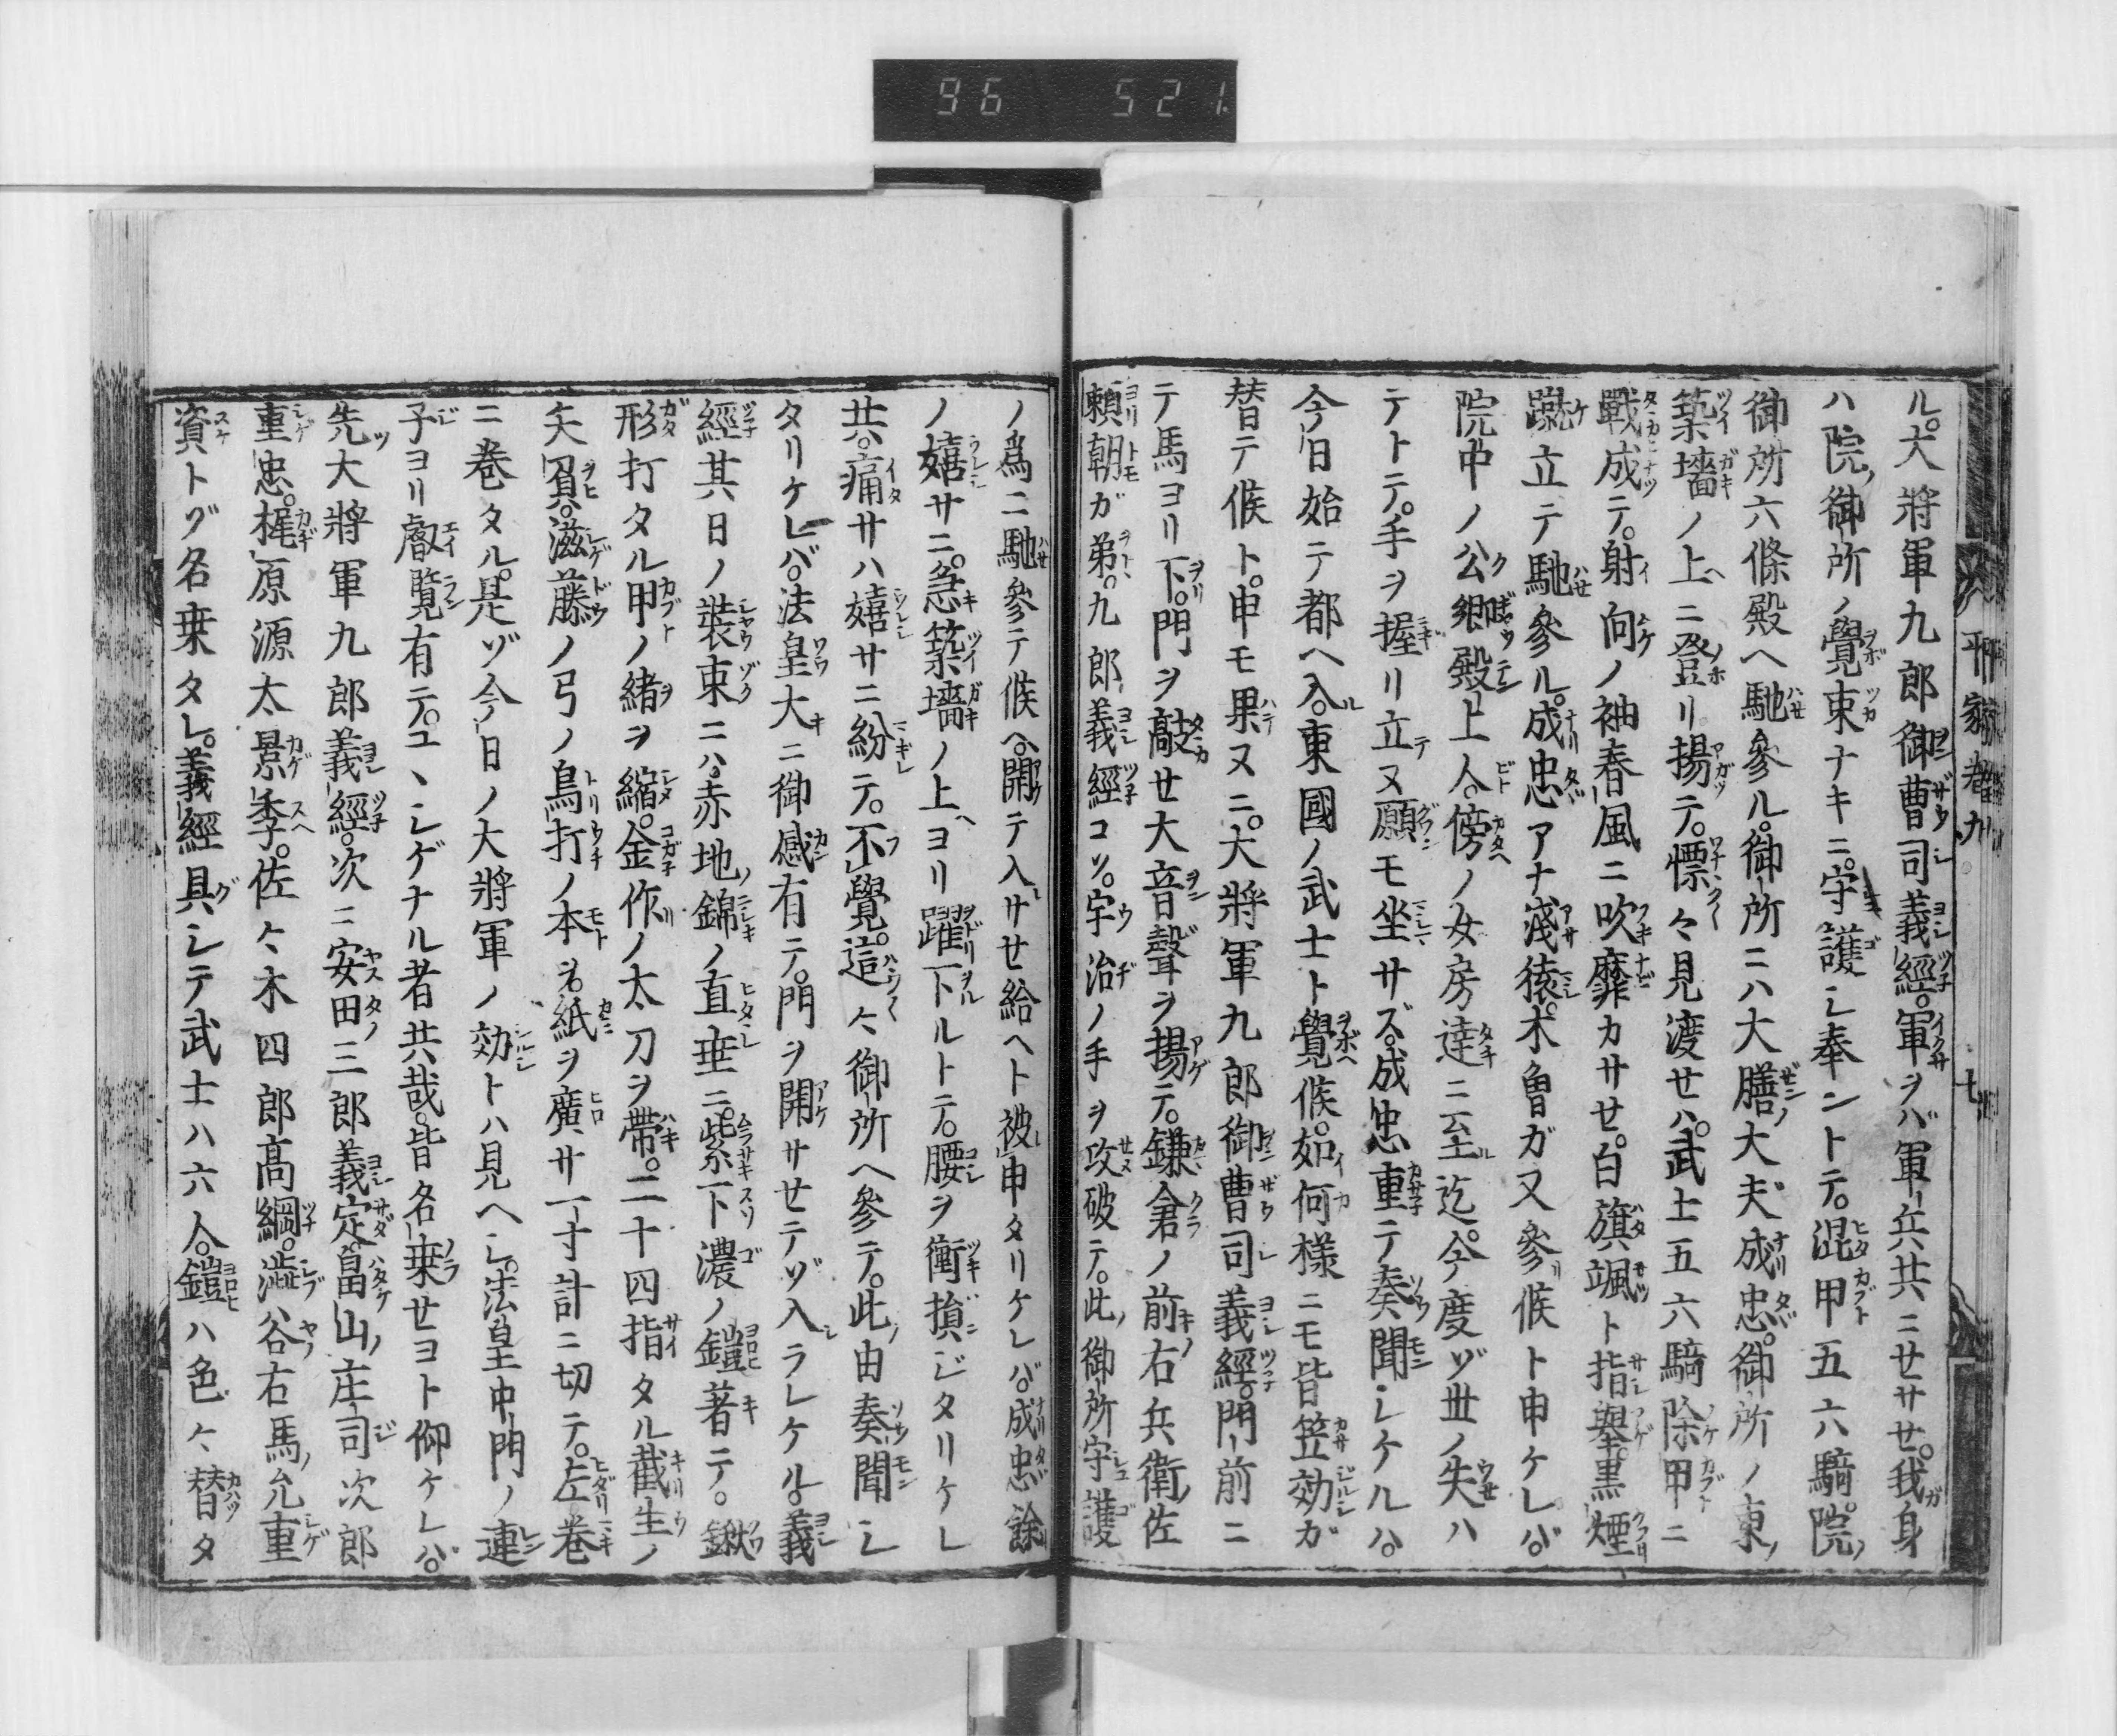 96 521
平家巻九
ル。大將軍九郎御曹司義經。軍ヲバ軍兵共ニセサセ。我身
ハ院ノ御所ノ覺束ナキニ。守護シ奉ントテ。混甲五六騎。院ノ
御所六條殿ヘ馳參ル。御所ニハ大膳ノ大夫成忠。御所ノ東ノ
築墻ノ上ニ登リ揚テ。慓々見渡セハ。武士五六騎除甲ニ
戰成テ。射向ノ袖春風ニ吹靡カサせ。白旗颯ト指擧。黒煙
蹴立テ馳參ル。成忠アナ淺猿。木曾ガ又參候ト申ケレバ。
院中ノ公卿殿上人。傍ノ女房達ニ至迄。今度ゾ世ノ失ハ
テトテ。手ヲ握リ立ヌ願モ坐サズ。成忠重テ奏聞シケルハ。
今日始テ都ヘ入。東國ノ武士ト覺候。如何樣ニモ皆笠効ガ
替テ候ト。申モ果ヌニ。大將軍九郎御曹司義經。門前ニ
テ馬ヨリ下。門ヲ敲セ大音聲ヲ揚テ。鎌倉ノ前右兵衛佐
頼朝ガ弟。九郎義經コソ。宇治ノ手ヲ攻破テ。此御所守護
ノ爲ニ馳參テ候ヘ。開テ入サせ給ヘト被申タリケレバ。成忠餘
ノ嬉サニ。急築墻ノ上ヨリ躍下ルトテ。腰ヲ衝損ジタリケレ
共。痛サハ嬉サニ紛テ。不覺。這々御所ヘ參テ。此由奏聞シ
タリケレバ。法皇大ニ御感有テ。門ヲ開サせテゾ入ラレケル。義
經其日ノ裝束ニハ。赤地ノ錦ノ直垂ニ。紫下濃ノ鎧著テ。鍬
形打タル甲ノ緒ヲ縮。金作ノ太刀ヲ帶。二十四指タル截生ノ
矢負。滋藤ノ弓ノ鳥打ノ本ヲ。紙ヲ廣サ一寸計ニ切テ。左巻
ニ巻タル。是ゾ今日ノ大將軍ノ効トハ見ヘシ。法皇中門ノ連
子ヨリ叡覽有テ。ユヽシゲナル者共哉。皆名乗せヨト仰ケレバ。
先大將軍九郎義經。次ニ安田三郎義定。畠山ノ庄司次郎
重忠。梶原源太景季。佐々木四郎高綱。澁谷右馬ノ允重
資トゾ名乗タル。義經具シテ武士ハ六人。鎧ハ色々替タ